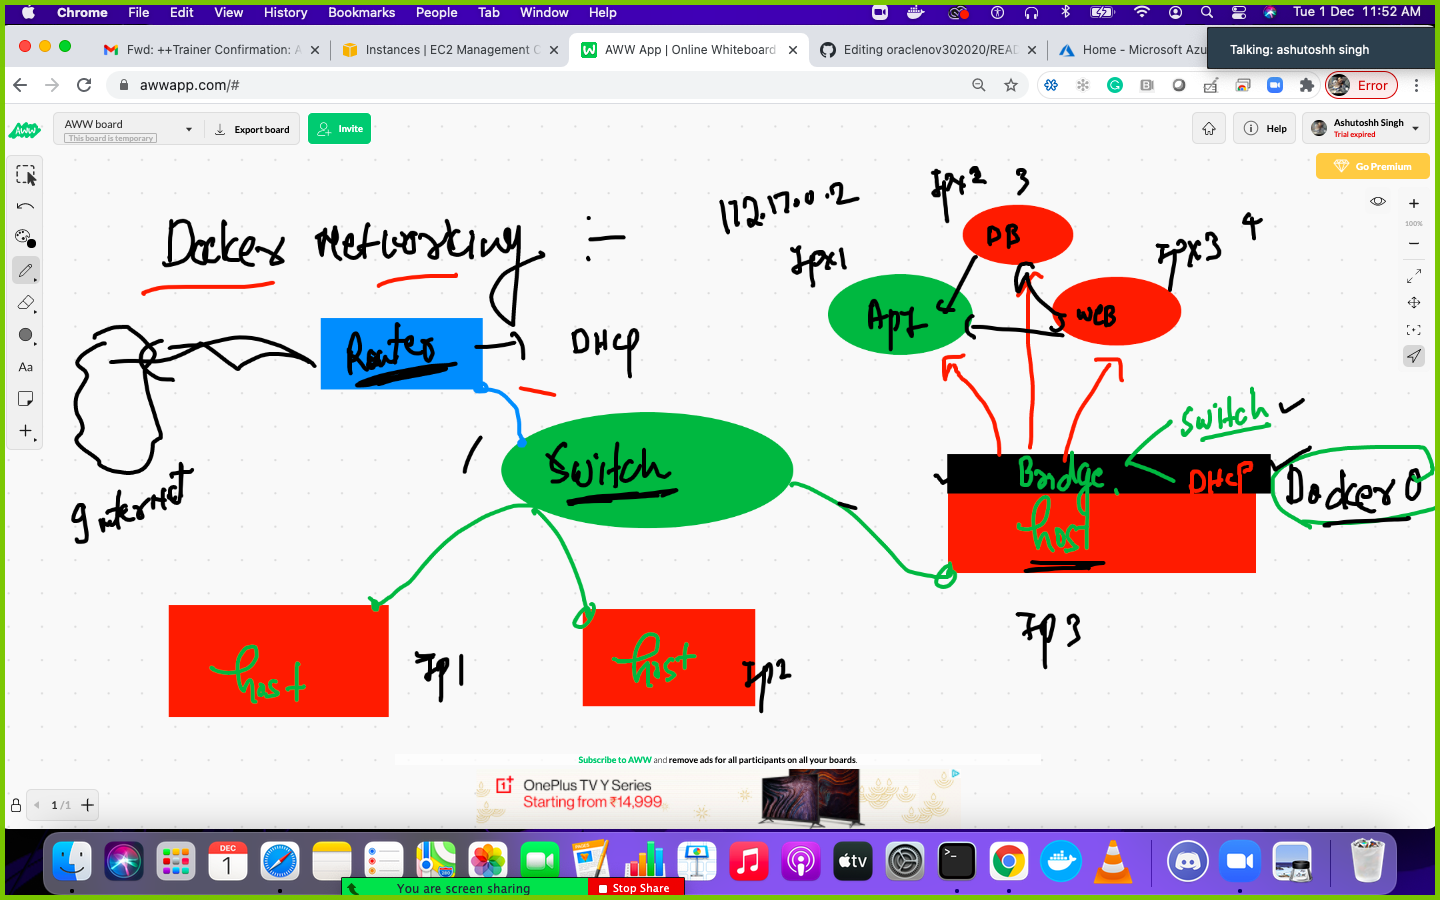 Chrome File Edit View History Bookmarks People Tab Window Help
Tue 1 Dec 11:52 AM
Fwd: ++Trainer Confirmation: A
Instances | EC2 Management C
AWW App | Online Whiteboard
Editing oraclenov302020/READ
Home - Microsoft Azu
Talking: ashutoshh singh
awwapp.com/#
Error
AWW
AWW board
This board is temporary
Export board
Invite
Help
Ashutoshh Singh
Trial expired
Go Premium
100%
Aa
Docker Networking :-
172.17.0.2
Ipx2 3
DB
Ipx1
Ipx3 4
App
WEB
Router
DHCP
Switch
Switch
Bridge
DHCP
Docker 0
host
Internet
host
Ip1
host
Ip2
Ip3
Subscribe to AWW and remove ads for all participants on all your boards.
OnePlus TV Y Series
Starting from ₹14,999
1 /1
DEC
1
tv
You are screen sharing
Stop Share